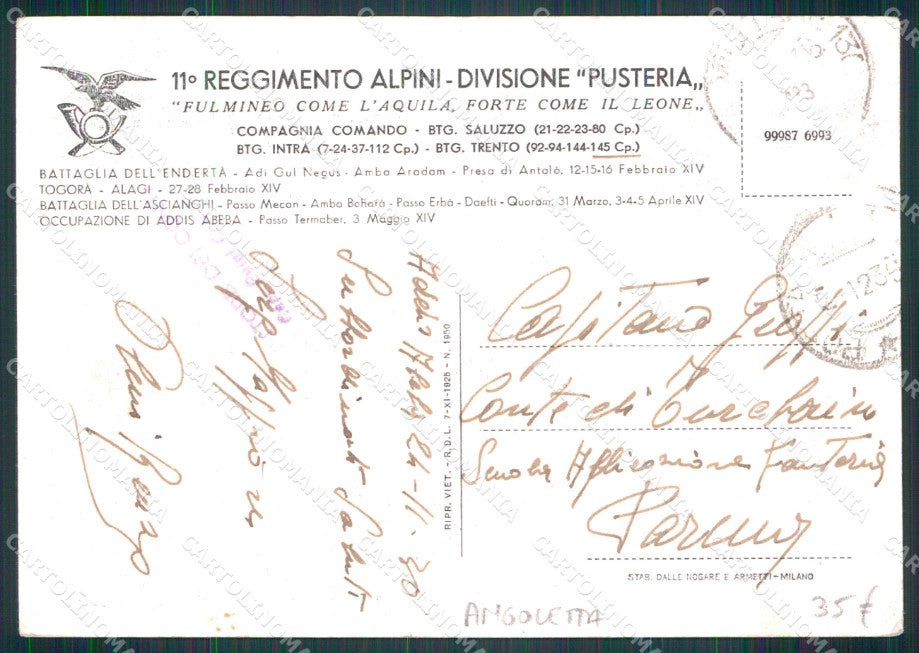 11º REGGIMENTO ALPINI - DIVISIONE "PUSTERIA„
"FULMINEO COME L'AQUILA, FORTE COME IL LEONE„
COMPAGNIA COMANDO - BTG. SALUZZO (21-22-23-80 Cp.)
BTG. INTRA (7-24-37-112 Cp.) - BTG. TRENTO (92-94-144-145 Cp.)
BATTAGLIA DELL'ENDERTÀ - Adi Gul Negus - Amba Aradam - Presa di Antalò, 12-15-16 Febbraio XIV
TOGORÀ - ALAGI - 27-28 Febbraio XIV
BATTAGLIA DELL'ASCIANGHI - Passo Mecan - Amba Bohorà - Passo Erbà - Daefti - Quoram, 31 Marzo, 3-4-5 Aprile XIV
OCCUPAZIONE DI ADDIS ABEBA - Passo Termaber, 3 Maggio XIV
99987 6993
Addis
Subordinati Saluti
RIPR. VIET. - R.D.L. 7-XI-1925 - N. 1950
Capitano
Conte di
Scuola Applicazione Fanteria
Parma
STAB. DALLE NOGARE E ARMETTI - MILANO
ANGOLETTA
35 €
CARTOLINOMANIA